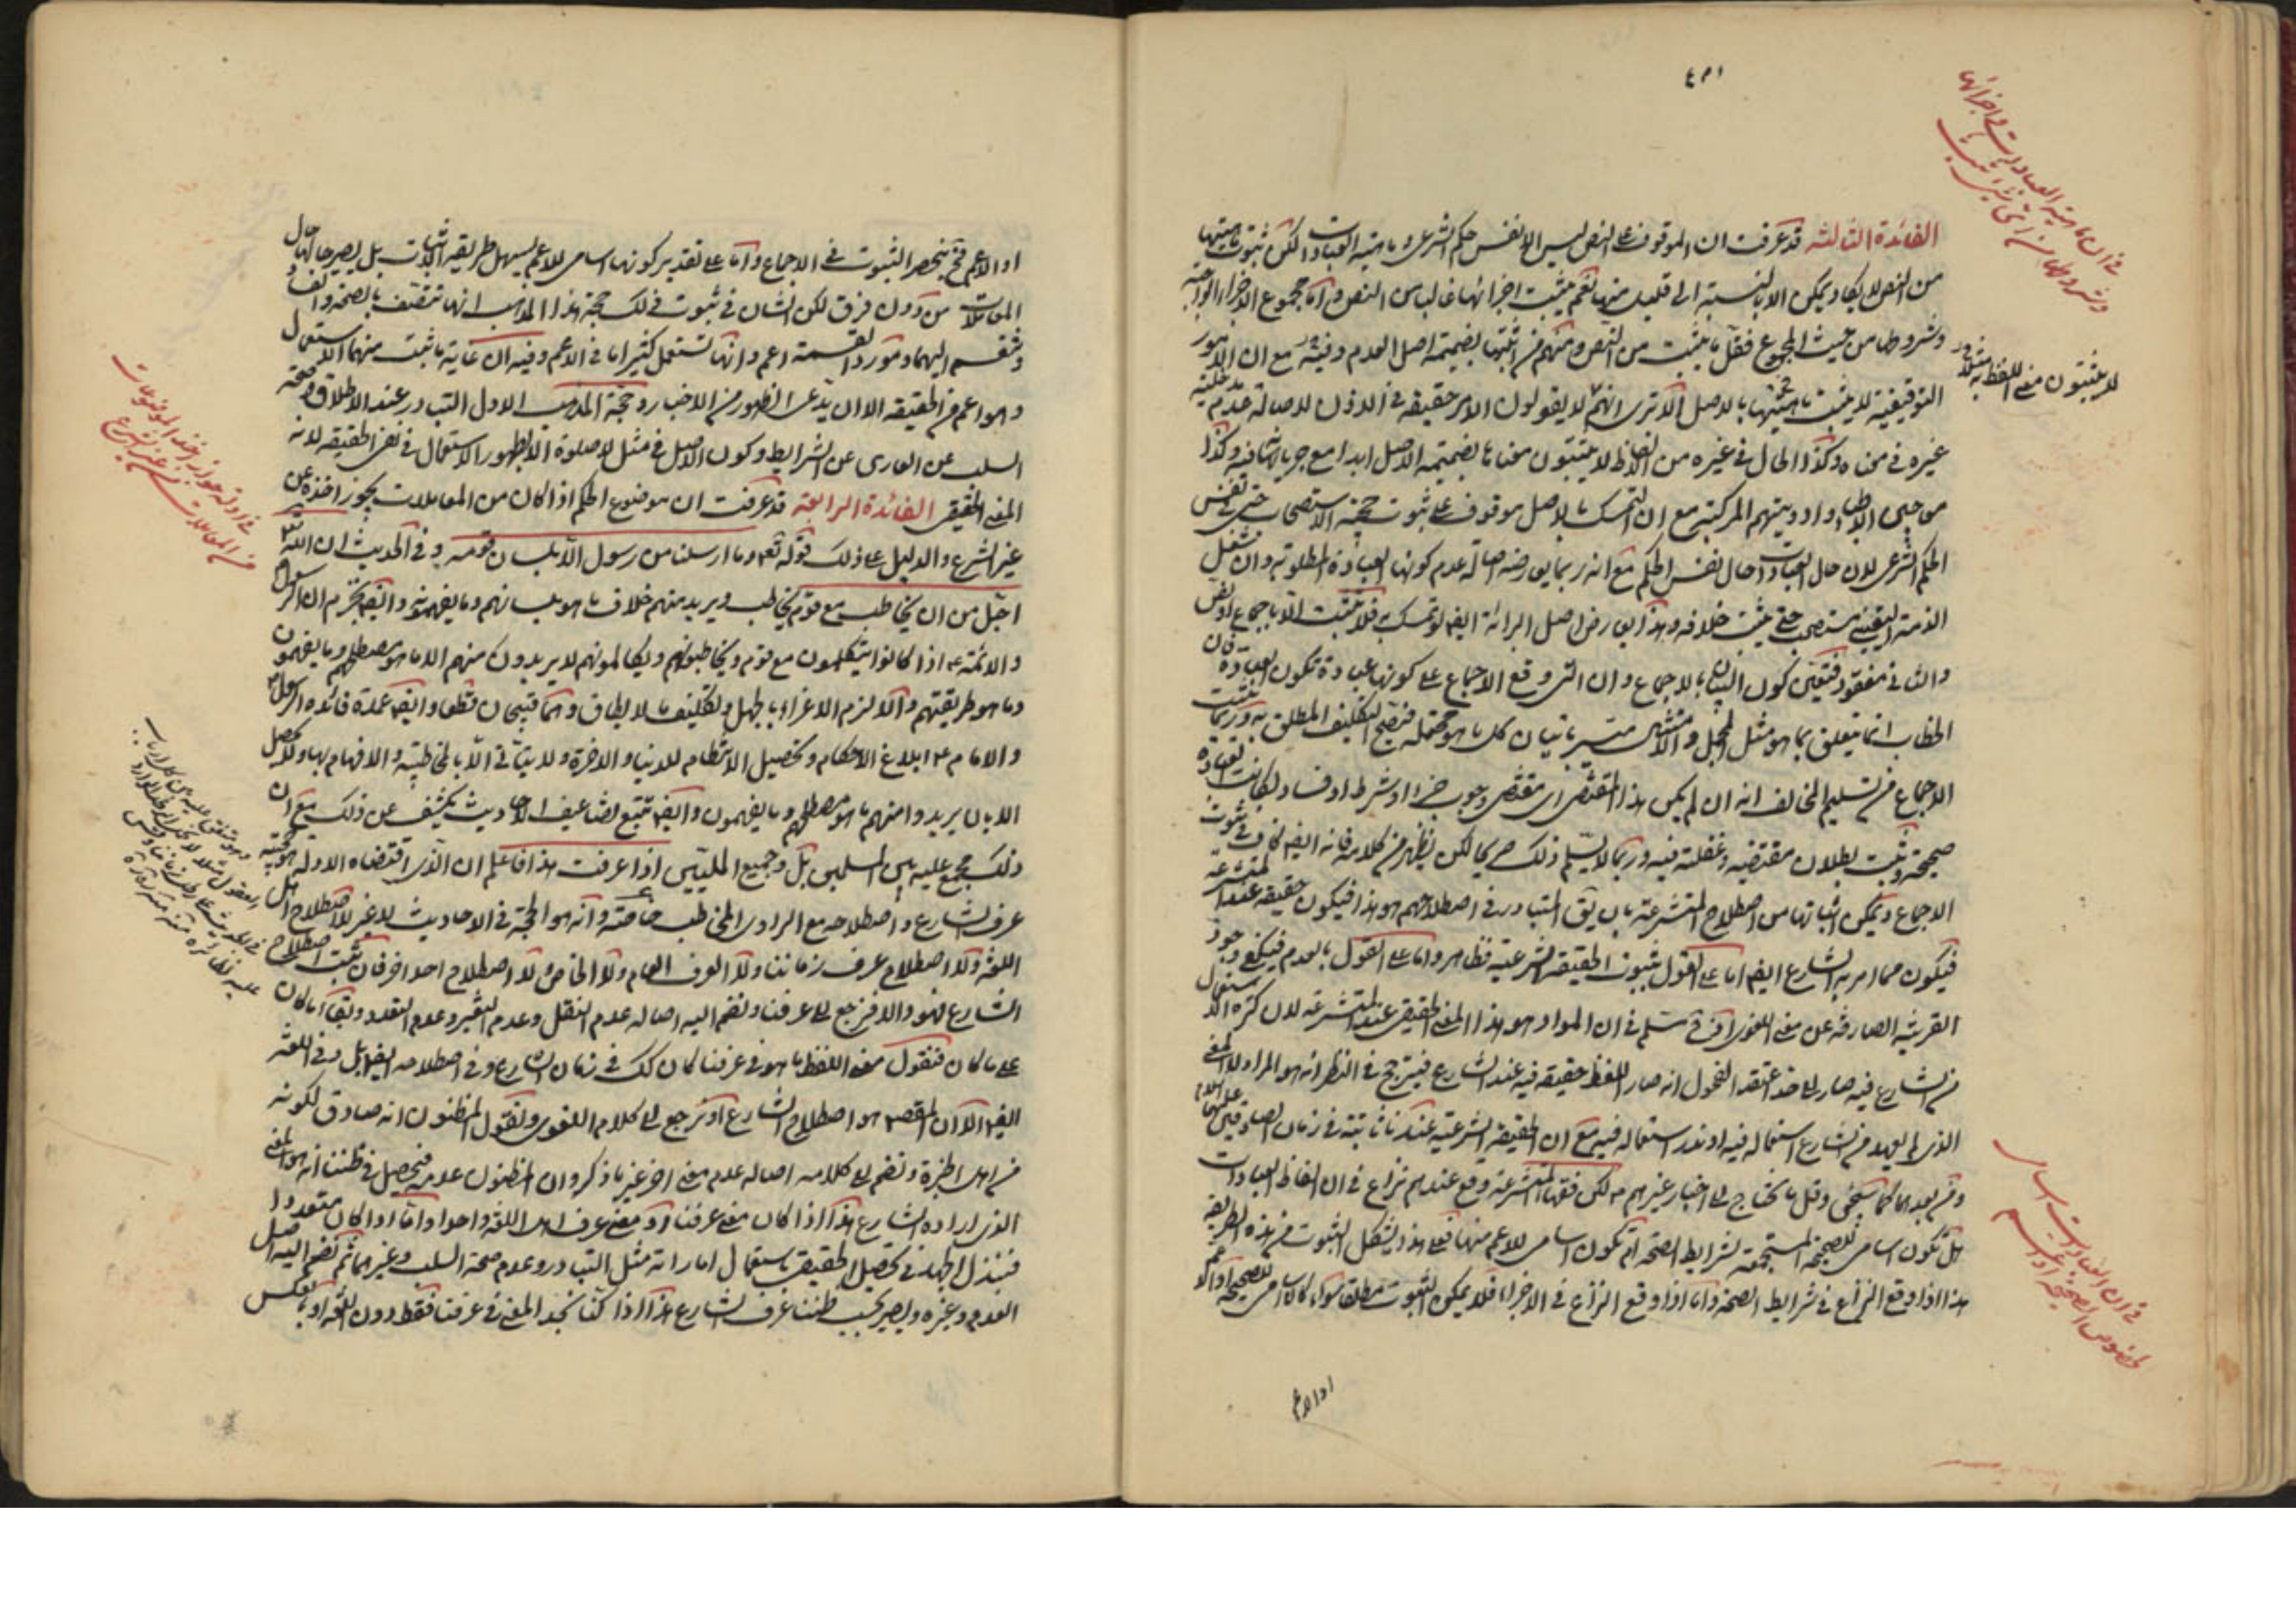 الفائدة الثالثة قد عرفت ان الموقوف على النص ليس الا نفس حكم الشرعى وماهية العبادات لكن ثبوت ماهيتها
من النص لا يكاد يمكن الا بالنسبة الى قليل منها نعم يثبت اجزائها غالبا من النص واما مجموع الاجزاء الواجبة
وشروطها من حيث المجموع فقل ما يثبت من النص ومنهم من اثبتها بضميمة اصل العدم وفيه مع ان الامور
التوقيفية لا يثبت ماهيتها بالاصل الا ترى انهم لا يقولون الامر حقيقة فى الاذن لاصالة عدم
غيره فى معناه وكذا الحال فى غيره من الالفاظ لا يثبتون معناها بضميمة الاصل ابدا مع جريانها فيه وكذا
معاجين الاطباء وادويتهم المركبة مع ان التمسك بالاصل موقوف على ثبوت حجية الاستصحاب حتى فى نفس
الحكم الشرعى لان حال العبادات حال نفس الحكم مع انه ربما يعارضه اصالة عدم كونها العبادة المطلوبة وان شغل
الذمة اليقينى مستصحب حتى يثبت خلافه وهذا يعارض اصل البرائة ايضا لو تمسك به فلا يثبت الا باجماع او نص
والثانى مفقود فتعين كون البيان بالاجماع وان التى وقع الاجماع على كونها عبادة تكون العبادة فان
الخطاب انما يتعلق بما هو مثل المجمل والامتثال متيسر باتيان كل ما هو محتمله فيصح التكليف المطلق به وربما يثبت
الاجماع من تسليم المخالف انه ان لم يكن هذا المقتضى اى مقتضى وجوب جزء او شرط او فساد لكانت العبادة
صحيحة وثبت بطلان مقتضيه وغفلته فيه وربما لا يسلم ذلك صريحا لكن يظهر من كلامه فانه ايضا كاف فى ثبوت
الاجماع ويمكن اثباتها من اصطلاح المتشرعة بان يق المتبادر فى اصطلاحهم هو هذا فيكون حقيقة عند المتشرعة
فيكون مما امر به الشارع ايضا اما على القول بثبوت الحقيقة الشرعية فظاهر واما على القول بالعدم فيكفى وجود
القرينة الصارفة عن معنى اللغوى اذ فى مسلم فى ان المراد هو هذا المعنى الحقيقى عند المتشرعة لان كثرة الاستعمال
من الشارع فيه صار الى حد اعتقد الفحول انه صار اللفظ حقيقة فيه عند الشارع فيترجح فى النظر انه هو المراد لا المعنى
الذى لم يعهد من الشارع استعماله فيه او ندر استعماله فيه مع ان الحقيقة الشرعية عندنا ثابتة فى زمان الصادقين عليهما السلام
ومن بعدهما كما سيجئ وقل ما نحتاج الى اخبار غيرهم لكن فقهاء المتشرعة وقع عندهم نزاع فى ان الفاظ العبادات
هل تكون اسامى للصحيحة المستجمعة لشرايط الصحة ام تكون اسامى للاعم منها فعلى هذا يشكل الثبوت من هذه الطريقة
هذا اذا وقع النزاع فى شرايط الصحة واما اذا وقع النزاع فى الاجزاء فلا يمكن الثبوت مطلقا سواء كان اسامى للصحيحة او الاعم
او الاعم
فى ان ماهية العبادات واجزائها
لا يثبتون معنى اللفظ به
فى ان العبادات اسامى
لخصوص الصحيحة او الاعم
او الاعم فح ينحصر الثبوت فى الاجماع واما على تقدير كونها اسامى للاعم يسهل طريقة اثبات بل يصير حالها حال
المعاملات من دون فرق لكن الشان فى ثبوت ذلك حجة هذا المذهب انها تتصف بالصحة والفساد
وتنقسم اليهما ومورد القسمة اعم وانها تستعمل كثيرا ما فى الاعم وفيه ان غاية ما ثبت منهما الاستعمال
وهو اعم من الحقيقة الا ان يدعى الظهور من الاخبار وحجة المذهب الاول التبادر عند الاطلاق وصحة
السلب عن العارى عن الشرايط وكون الاصل فى مثل لا صلوة الا بطهور الاستعمال فى نفى الحقيقة لانه
المعنى الحقيقى الفائدة الرابعة قد عرفت ان موضوع الحكم اذا كان من المعاملات يجوز اخذه عن
غير الشرع والدليل على ذلك قوله تعالى وما ارسلنا من رسول الا بلسان قومه وفى الحديث ان الله
اجل من ان يخاطب مع قوم يخاطب ويريد منهم خلاف ما هو بلسانهم وما يفهمونه وايضا نجزم ان الرسول
والائمة اذا كانوا يتكلمون مع قوم ويخاطبونهم ويكالمونهم لا يريدون منهم الا ما هو مصطلحهم وما يفهمون
وما هو طريقتهم والا لزم الاغراء بالجهل وتكليف ما لا يطاق وهما قبيحان قطعا وايضا عمدة فائدة الرسول
والامام ابلاغ الاحكام وتحصيل الانتظام للدنيا والاخرة ولا يتاتى الا بالمخاطبة والافهام بها ولا يحصل
الا بان يريدوا منهم ما هو مصطلحهم وما يفهمون وايضا تتبع تضاعيف الاحاديث يكشف عن ذلك مع ان
ذلك مجمع عليه بين المسلمين بل وجميع المليين اذا عرفت هذا فاعلم ان الذى اقتضاه الادلة هو حجية
عرف الشارع واصطلاحه مع الراوى المخاطب خاصة وانه هو الحجة فى الاحاديث لا غير لا اصطلاح اهل
اللغة ولا اصطلاح عرف زماننا ولا العرف العام ولا الخاص ولا اصطلاح احد اخر فان ثبت اصطلاح
الشارع فهو والا فنرجع الى عرفنا ونضم اليه اصالة عدم النقل وعدم التغير وعدم التعدد وبقاء ما كان
على ما كان فنقول معنى اللفظ ما هو فى عرفنا كان كك فى زمان الشارع وفى اصطلاحه ايضا بل وفى اللغة
ايضا الا ان المقصود هو اصطلاح الشارع او نرجع الى كلام اللغوى ونقول المظنون انه صادق لكونه
من اهل الخبرة ونضم الى كلامه اصالة عدم معنى اخر غير ما ذكر وان المظنون عدمه فيحصل فى ظننا انه هو المعنى
الذى اراده الشارع هذا اذا كان معنى عرفنا او معنى عرف اهل اللغة واحدا واما اذا كان متعددا
فنبذل الجهد فى تحصيل الحقيقى باستعمال اماراته مثل التبادر وعدم صحة السلب وغيرهما ثم نضم اليه اصل
العدم وغيره ويصير بحسب ظننا عرف الشارع هذا اذا كنا نجد المعنى فى عرفنا فقط دون اللغة او بالعكس